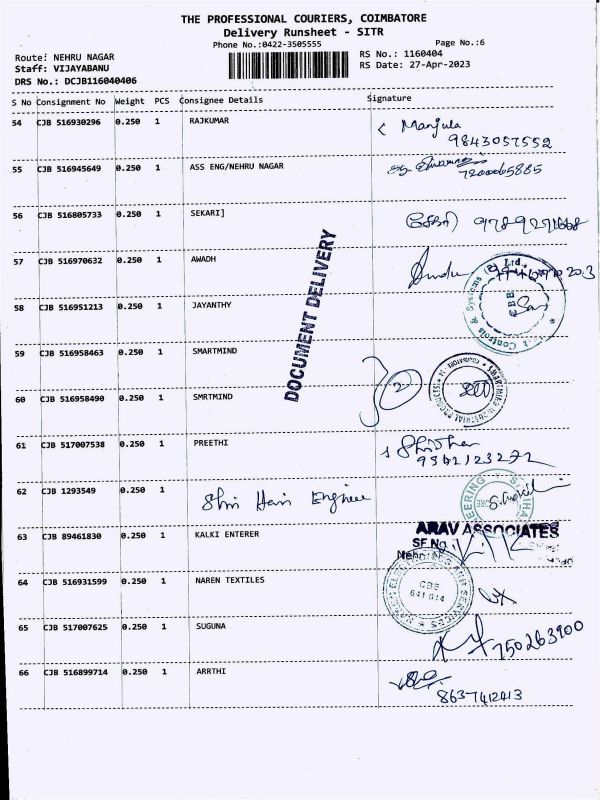 THE PROFESSIONAL COURIERS, COIMBATORE
Delivery Runsheet - SITR
Phone No.:0422-3505555 Page No.:6
Route: NEHRU NAGAR RS No.: 1160404
Staff: VIJAYABANU RS Date: 27-Apr-2023
DRS No.: DCJB116040406
S No Consignment No Weight PCS Consignee Details Signature
54 CJB 516930296 0.250 1 RAJKUMAR Manjula
9843057552
55 CJB 516945649 0.250 1 ASS ENG/NEHRU NAGAR
56 CJB 516805733 0.250 1 SEKARI]
57 CJB 516970632 0.250 1 AWADH
58 CJB 516951213 0.250 1 JAYANTHY
DOCUMENT DELIVERY
59 CJB 516958463 0.250 1 SMARTMIND
60 CJB 516958490 0.250 1 SMRTMIND
61 CJB 517007538 0.250 1 PREETHI
62 CJB 1293549 0.250 1 Shri Hari
63 CJB 89461830 0.250 1 KALKI ENTERER ARAV ASSOCIATES
SF.No.
64 CJB 516931599 0.250 1 NAREN TEXTILES
65 CJB 517007625 0.250 1 SUGUNA
66 CJB 516899714 0.250 1 ARRTHI
8637412413